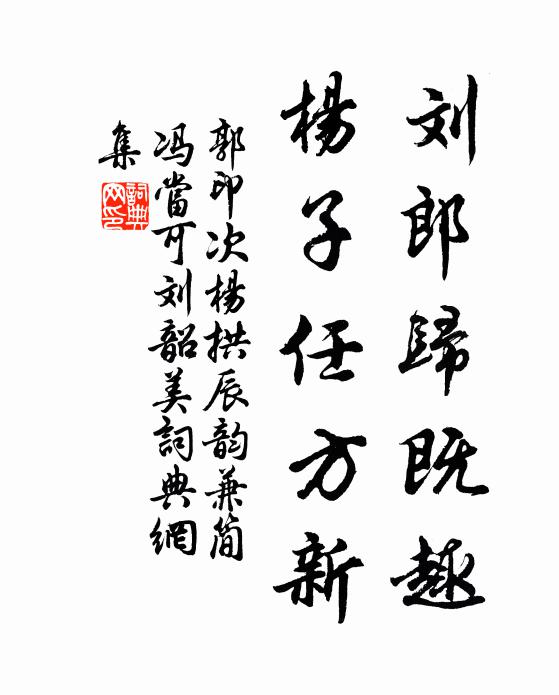 刘郎歸既趣
楊子任方新
郭印次楊拱辰韵兼简
冯當可刘韶美詞典網
集
詞典网印